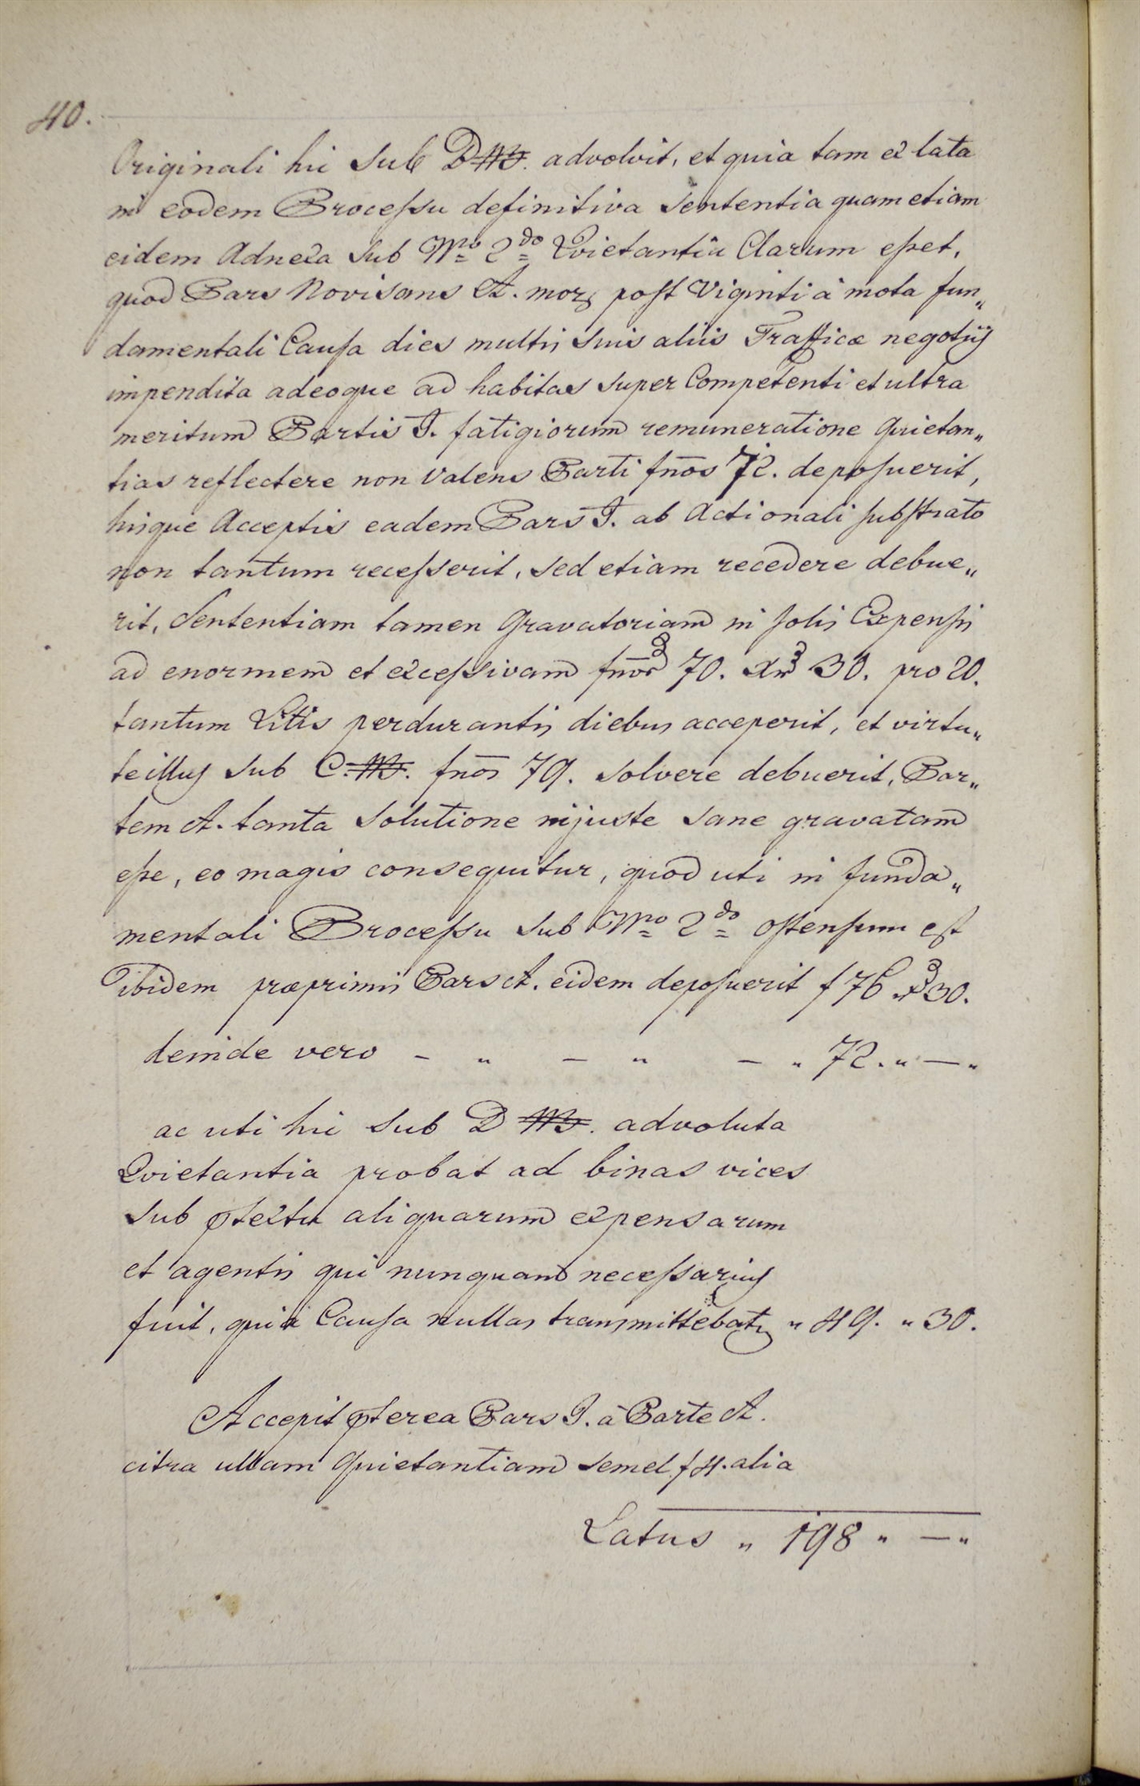 40.
Originali hic sub D. advolvit, et quia tam ex lata
in eodem Processu definitiva sententia quam etiam
eidem Adnexa sub Nro 2do Quietantia Clarum esset,
quod Pars Novisans A. mox post Viginti à mota fun„
damentali Causa dies multis suis aliis Trafficæ negotiis
impendita adeoque ad habitas super Competenti et ultra
meritum Partis I. fatigiorum remuneratione Quietan„
tias reflectere non Valens Parti fnos 72. deposuerit,
hisque Acceptis eadem Pars I. ab Actionali substrato
non tantum recesserit, sed etiam recedere debue„
rit, Sententiam tamen Gravatoriam in solis Expensis
ad enormem et excessivam fnor 70. xr 30. pro 20.
tantum Litis perdurantis diebus acceperit, et virtu„
te illius sub C. fnos 79. solvere debuerit, Par„
tem A. tanta solutione injuste sane gravatam
esse, eo magis consequitur, quod uti in funda„
mentali Processu sub Nro 2do ostensum est
Ibidem præprimis Pars A. eidem deposuerit f 76 x 30.
deinde vero – „ – „ – „ 72. „ — „
ac uti hic sub D advoluta
Quietantia probat ad binas vices
sub ptextu aliquarum expensarum
et agentis qui nunquam necessarius
fuit, quia Causa nullas transmittebat „ 49. „ 30.
Accepit pterea Pars I. à Parte A.
citra ullam Quietantiam semel f 4. alia
Latus „ 198 „ — „